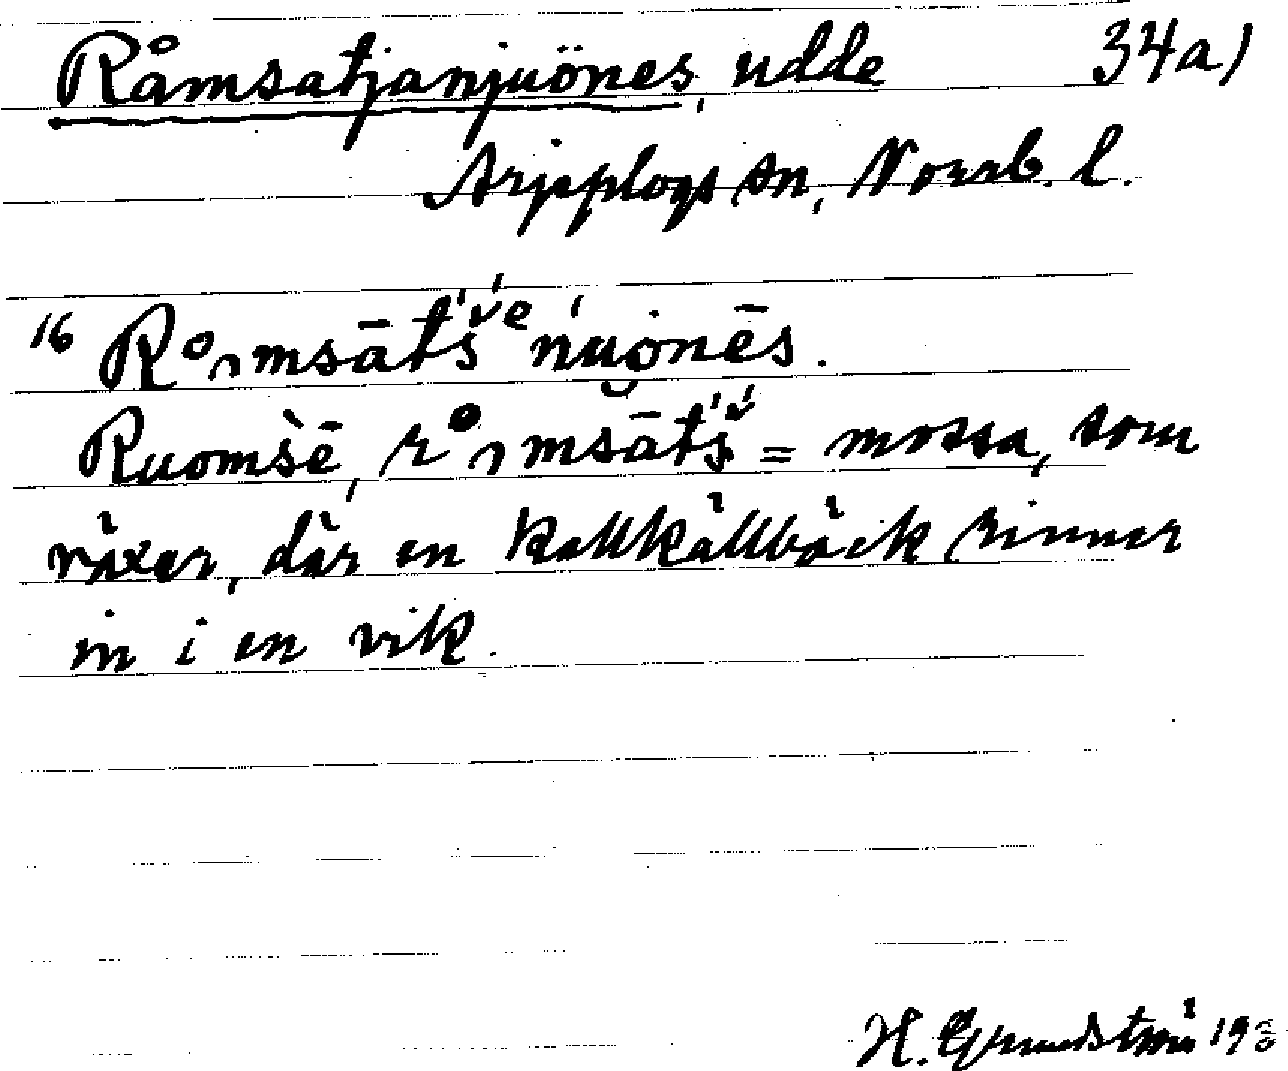 Råmsatjanjuönes, udde 34a)
Arjeplogs sn, Norrb. l.
16 Råmsāt́š́ᵉ ńuọnēs.
Ruomsē, råmsāt́š́ = mossa, som
växer, där en kallkällbäck rinner
in i en vik.
H. Grundström 193